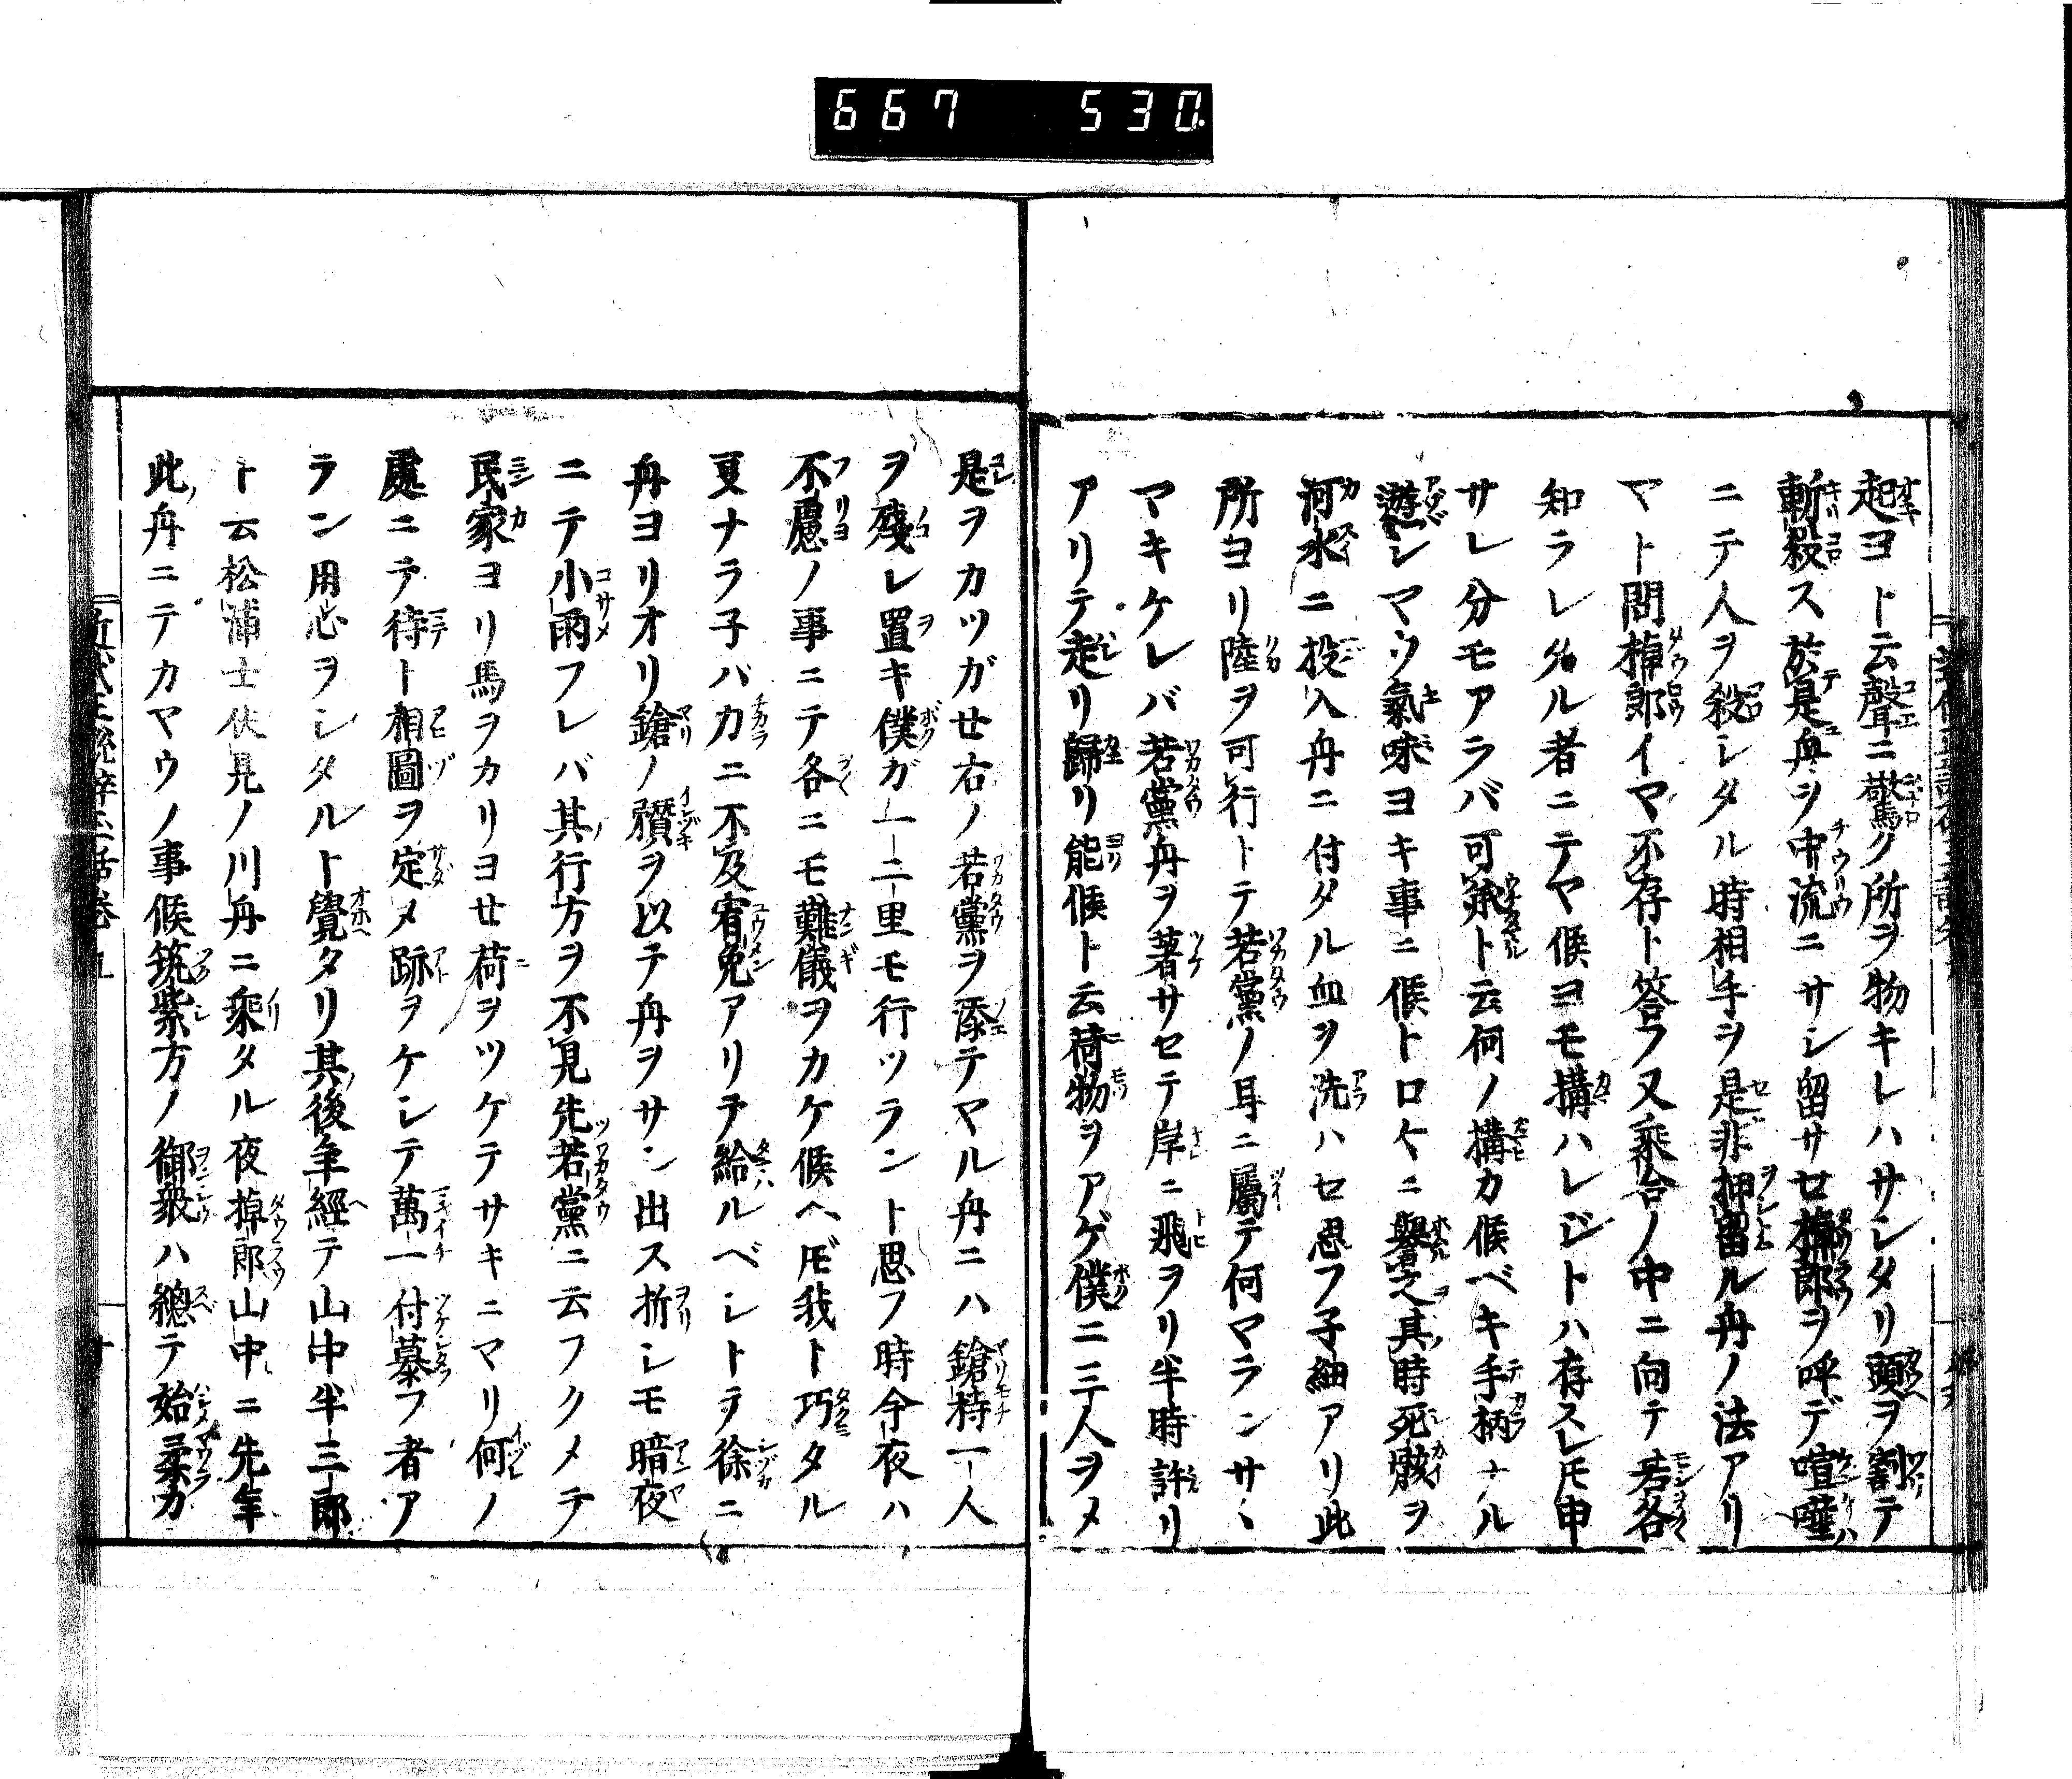 667 530
起ヨト云聲ニ驚ク所ヲ物キレハサシタリ頭ヲ割テ
斬殺ス於是舟ヲ中流ニサシ留サセ棹郎ヲ呼デ喧嘩
ニテ人ヲ殺シタル時相手ヲ是非押留ル舟ノ法アリ
マト問棹郎イマ不存ト答フ又乘合ノ中ニ向テ若各
知ラレタル者ニテヤ候ヨモ構ハレジト八存スレ𪜈申
サレ分モアラバ可承ト云何ノ構カ候ベキ手柄ナル
遊シマウ氣味ヨキ事ニ候ト口々ニ譽之其時死骸ヲ
河水ニ投入舟ニ付タル血ヲ洗ハセ思フ子細アリ此
所ヨリ陸ヲ可行トテ若黨ノ耳ニ屬テ何マランサヽ
マキケレバ若黨舟ヲ著サセテ岸ニ飛ヲリ半時許リ
アリテ走リ歸リ能候ト云荷物ヲアゲ僕二三人ヲメ
是ヲカツガせ右ノ若黨ヲ添テマル舟ニハ鎗持一人
ヲ殘レ置キ僕ガ一二里モ行ツラント思フ時今夜ハ
不慮ノ事ニテ各ニモ難儀ヲカケ候ヘ𪜈我ト巧タル
叓ナラ子バ力ニ不及宥免アリテ給ルベシトテ徐ニ
舟ヨリオリ鎗ノ䂎ヲ以テ舟ヲサシ出ス折シモ暗夜
ニテ小雨フレバ其行方ヲ不見先若黨ニ云フクメテ
民家ヨリ馬ヲカリヨせ荷ヲツケテサキニマリ何ノ
處ニテ待ト相圖ヲ定メ跡ヲケシテ萬一付慕フ者ア
ラン用心ヲシタルト覺タリ其後年經テ山中半三郎
ト云松浦士伏見ノ川舟ニ乘タル夜棹郎山中ニ先年
此舟ニテカマウノ事候筑紫方ノ御衆ハ總テ始柔カ